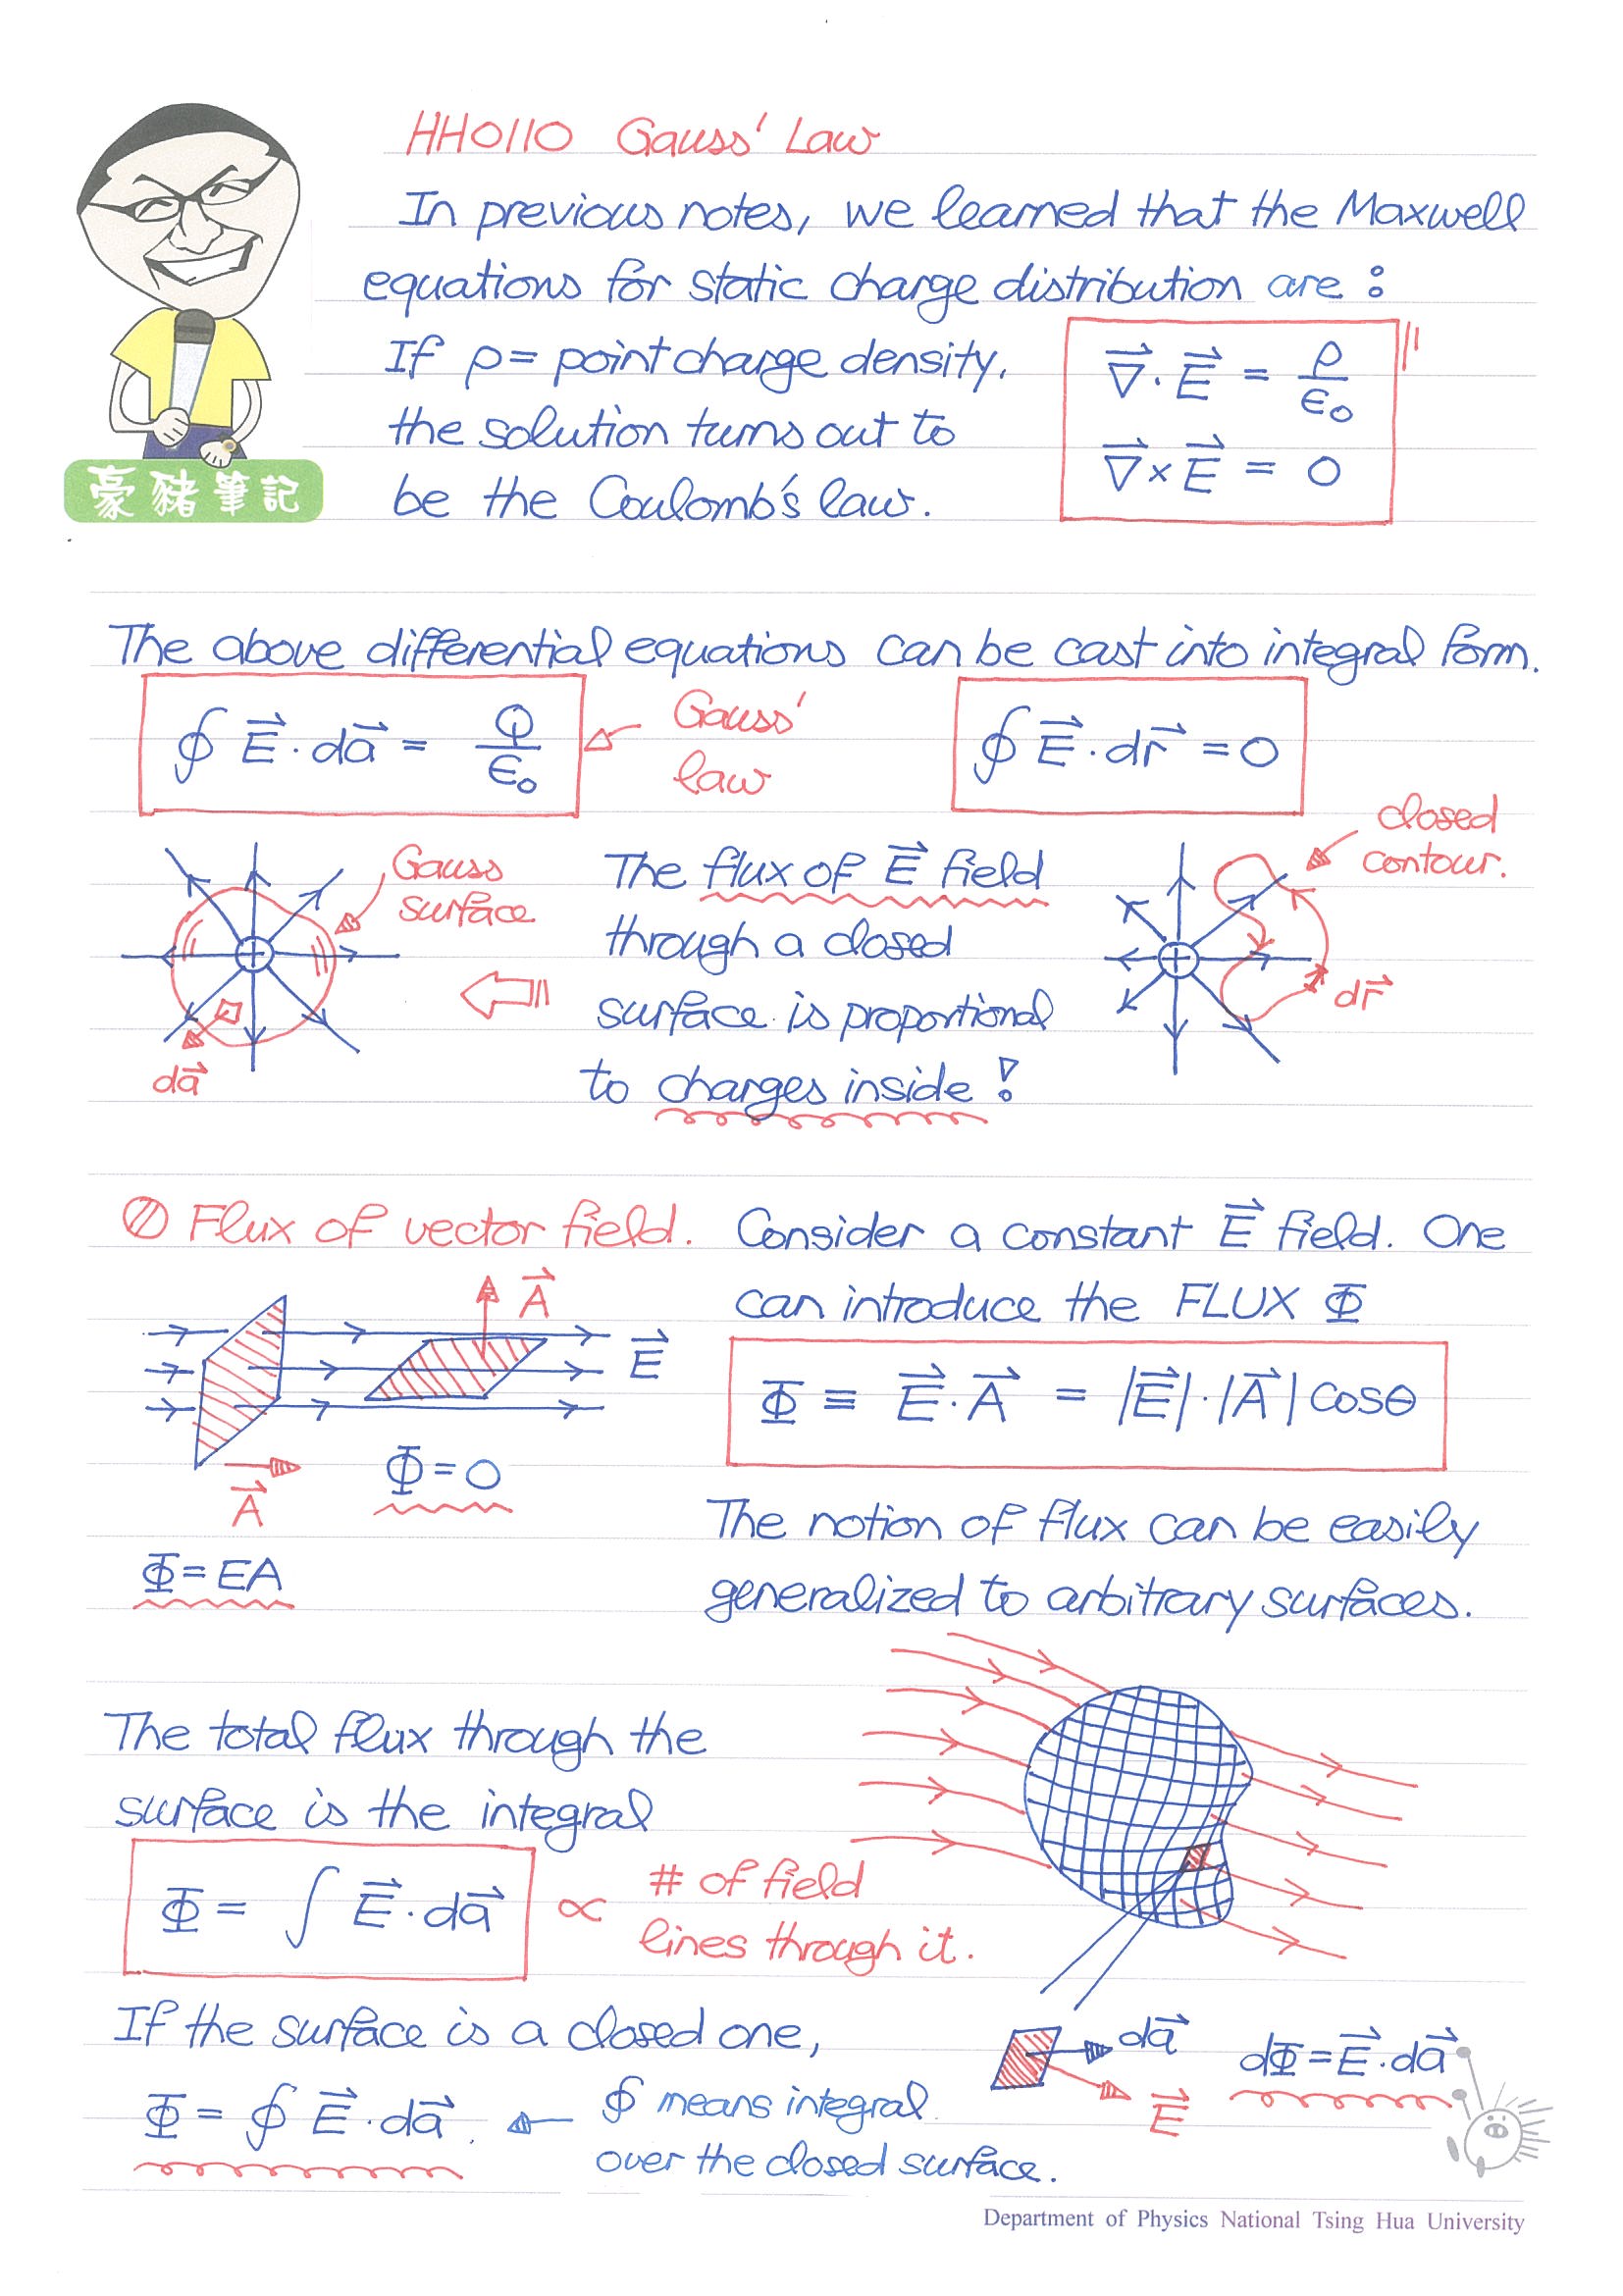 HH0110 Gauss' Law
In previous notes, we learned that the Maxwell
equations for static charge distribution are :
If ρ = point charge density,
the solution turns out to
be the Coulomb's law.
∇⃗ · E⃗ = ρ/ε₀
∇⃗ × E⃗ = 0
豪豬筆記
The above differential equations can be cast into integral form.
∮ E⃗ · da⃗ = Q/ε₀
Gauss'
law
∮ E⃗ · dr⃗ = 0
closed
contour.
Gauss
surface
da⃗
The flux of E⃗ field
through a closed
surface is proportional
to charges inside !
dr⃗
Flux of vector field.
Consider a constant E⃗ field. One
can introduce the FLUX Φ
A⃗
E⃗
Φ ≡ E⃗ · A⃗ = |E⃗| · |A⃗| cosθ
A⃗
Φ = 0
Φ = EA
The notion of flux can be easily
generalized to arbitrary surfaces.
The total flux through the
surface is the integral
Φ = ∫ E⃗ · da⃗ ∝ # of field
lines through it.
If the surface is a closed one,
Φ = ∮ E⃗ · da⃗.
∮ means integral
over the closed surface.
da⃗
E⃗
dΦ = E⃗ · da⃗
Department of Physics National Tsing Hua University